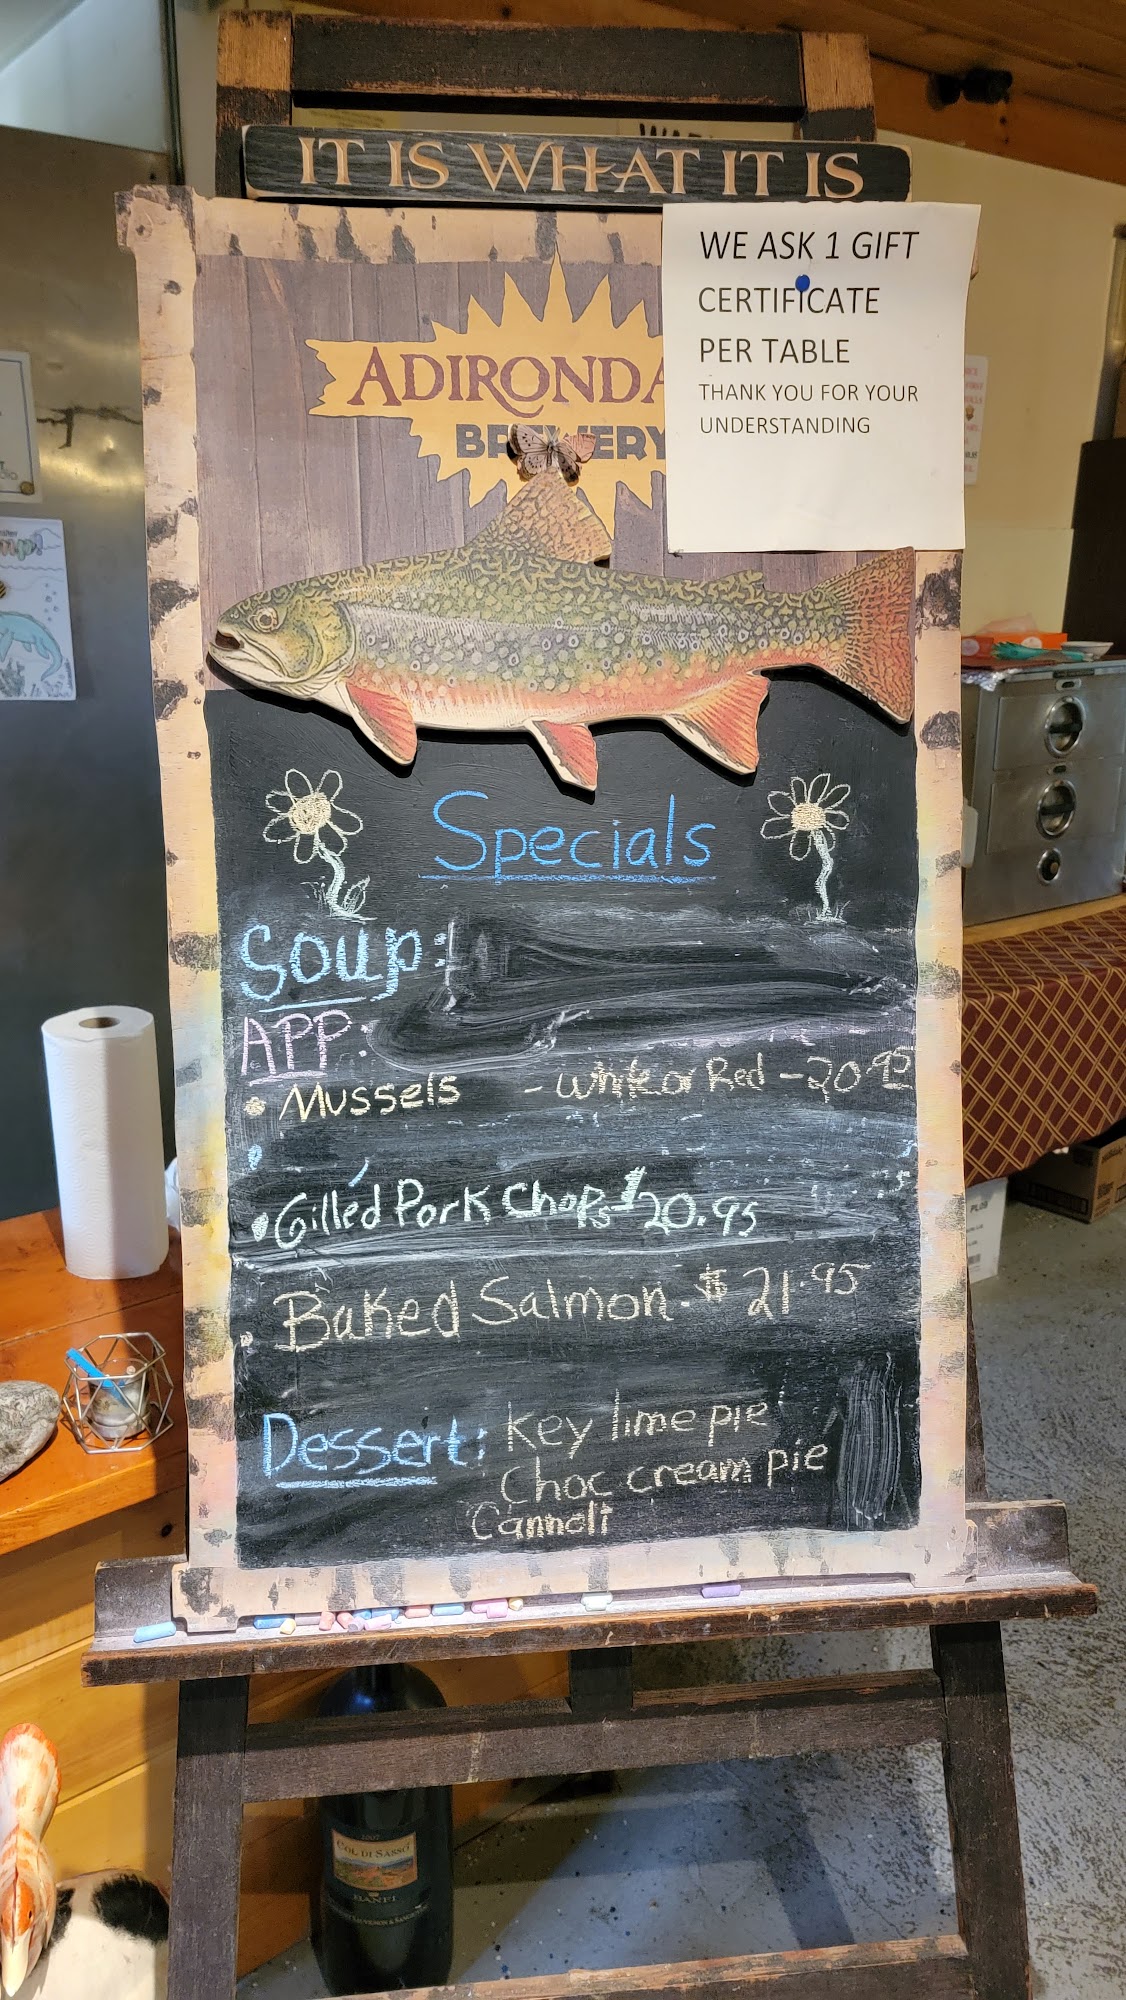 IT IS WHAT IT IS
WE ASK 1 GIFT
CERTIFICATE
PER TABLE
THANK YOU FOR YOUR
UNDERSTANDING
ADIRONDA
BREWERY
Specials
Soup:
APP:
• Mussels - White or Red - 20.95
• Gilled Pork Chops $20.95
• Baked Salmon. $21.95
Dessert: Key lime pie
Choc cream pie
Cannoli
2007
COL DI SASSO
BANFI